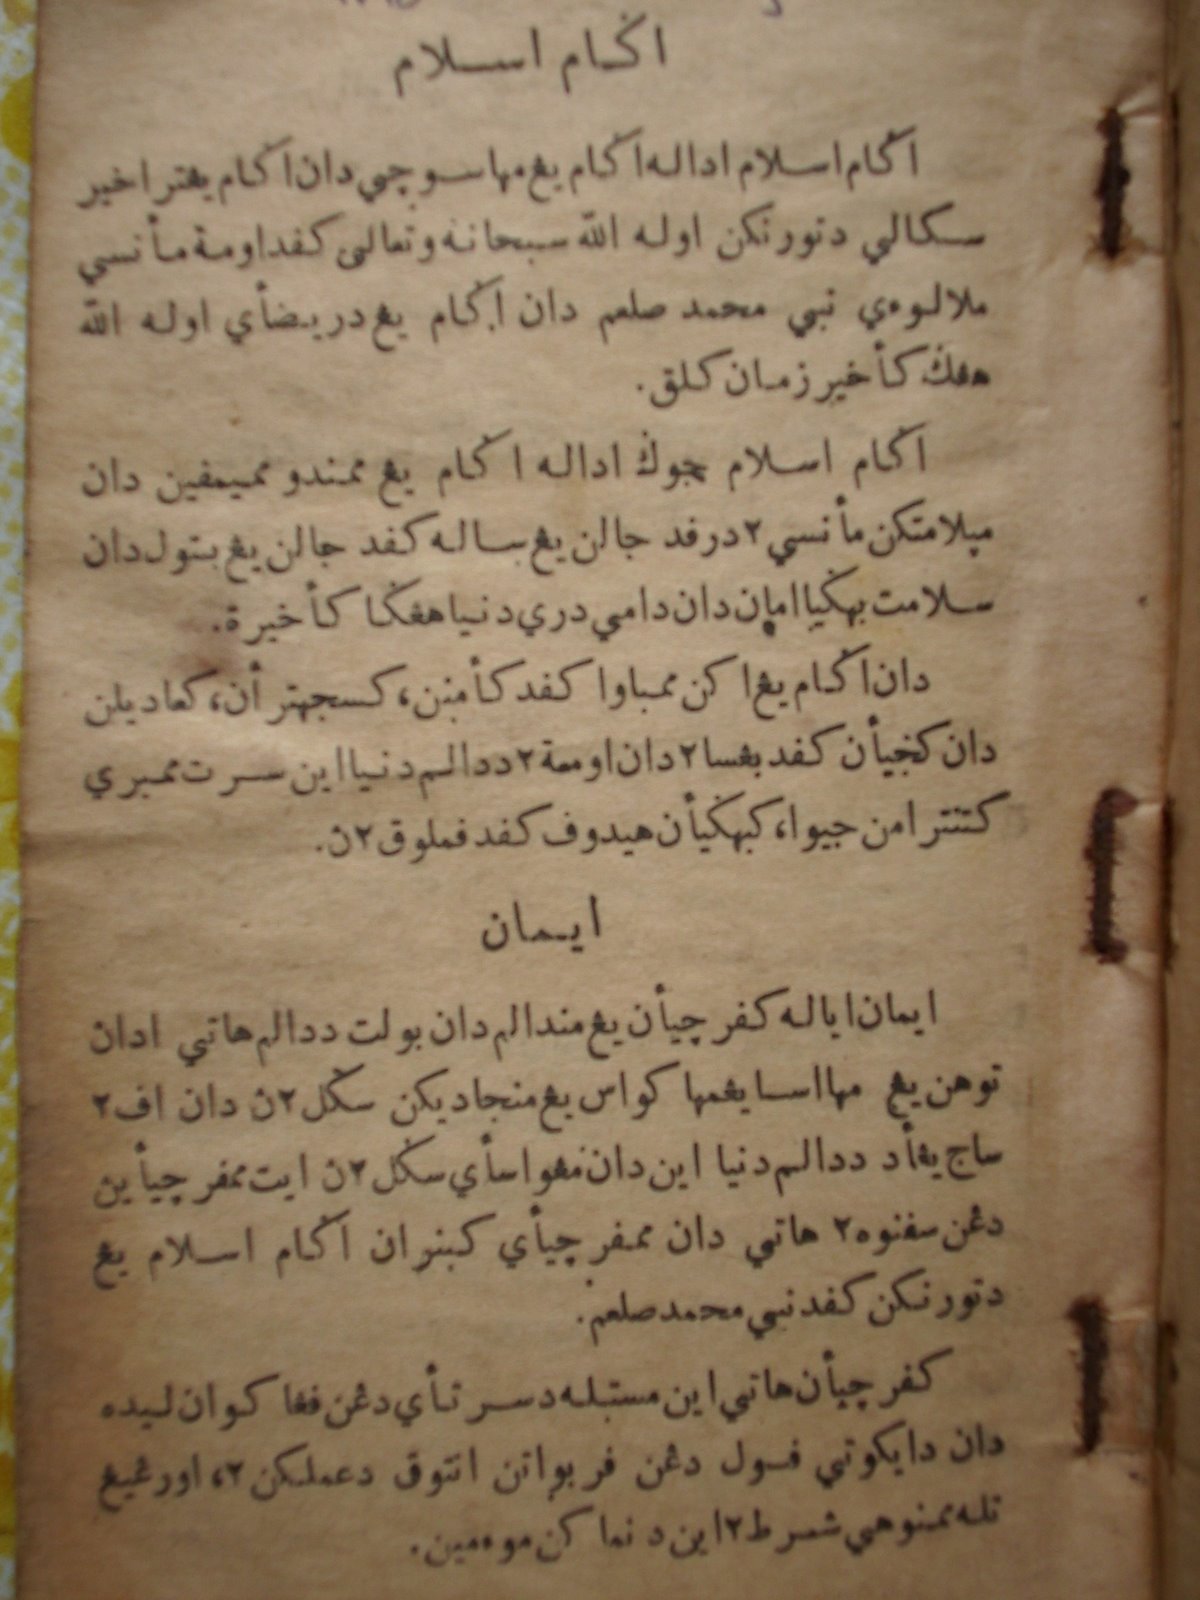 اݢام اسلام
اݢام اسلام اداله اݢام يڠ مها سوچي دان اݢام يڠتراخير
سكالي دتورنكن اوله الله سبحانه وتعالى كفد اومة مأنسي
ملالوءي نبي محمد صلعم دان اݢام يڠ دريضأي اوله الله
هڠݢ كأخير زمان كلق.
اݢام اسلام جوݢ اداله اݢام يڠ ممندو ممبيمفين دان
مڽلامتكن مأنسي٢ درفد جالن يڠ ساله كفد جالن يڠ بتول دان
سلامت بهݢيا امان دان دامي دري دنيا هڠݢا كأخيرة.
دان اݢام يڠ اكن ممباوا كفد كأمنن، كسجهترأن، كعاديلن
دان كڠجيأن كفد بڠسا٢ دان اومة٢ ددالم دنيا اين سرت ممبري
كتنترامن جيوا، كبهݢيأن هيدوف كفد فملوق٢ڽ.
ايمان
ايمان اياله كفرچيأن يڠ مندالم دان بولت ددالم هاتي اداڽ
توهن يڠ مها اسا يڠمها كواس يڠ منجاديكن سݢل٢ڽ دان اف٢
ساج يڠأد ددالم دنيا اين دان مڠواسأي سݢل٢ڽ ايت ممفرچيأين
دڠن سفنوه٢ هاتي دان ممفرچيأي كبنران اݢام اسلام يڠ
دتورنكن كفد نبي محمد صلعم.
كفرچيأن هاتي اين مستيله دسرتأي دڠن فڠاكوان ليده
دان دايكوتي فول دڠن فربواتن انتوق دعملكن٢، اورڠيڠ
تله ممنوهي شرط٢ اين دنماكن موءمين.